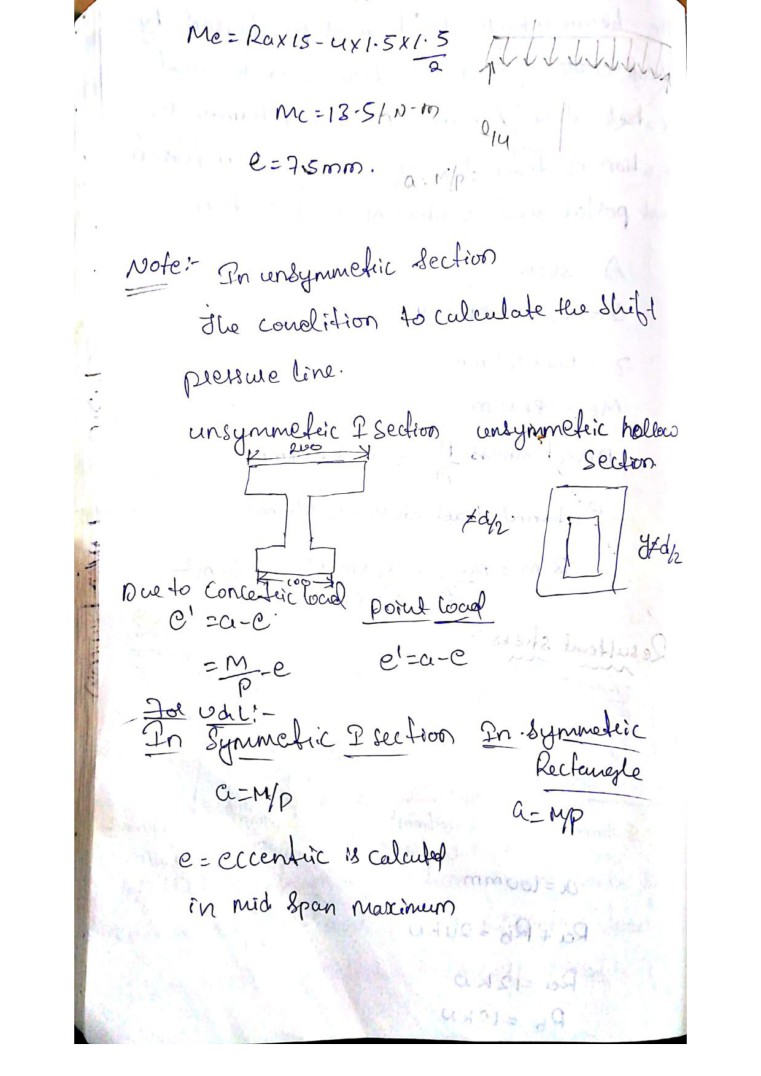 Mc = Ra×15 - 4×1.5×1.5/2
Mc = 13.5 kN-m
0/4
e = 75mm.
a = M/p
Note:- In unsymmetric section
The condition to calculate the shift
pressure line.
unsymmetric I section unsymmetric hollow
section
200
≠d/2
y≠d/2
100
Due to concentric load
e' = a-e
point load
= M/P - e
e' = a-e
For Udl:-
In Symmetric I section In symmetric
Rectangle
a = M/P
a = M/P
e = eccentric is calculted
in mid span maximum